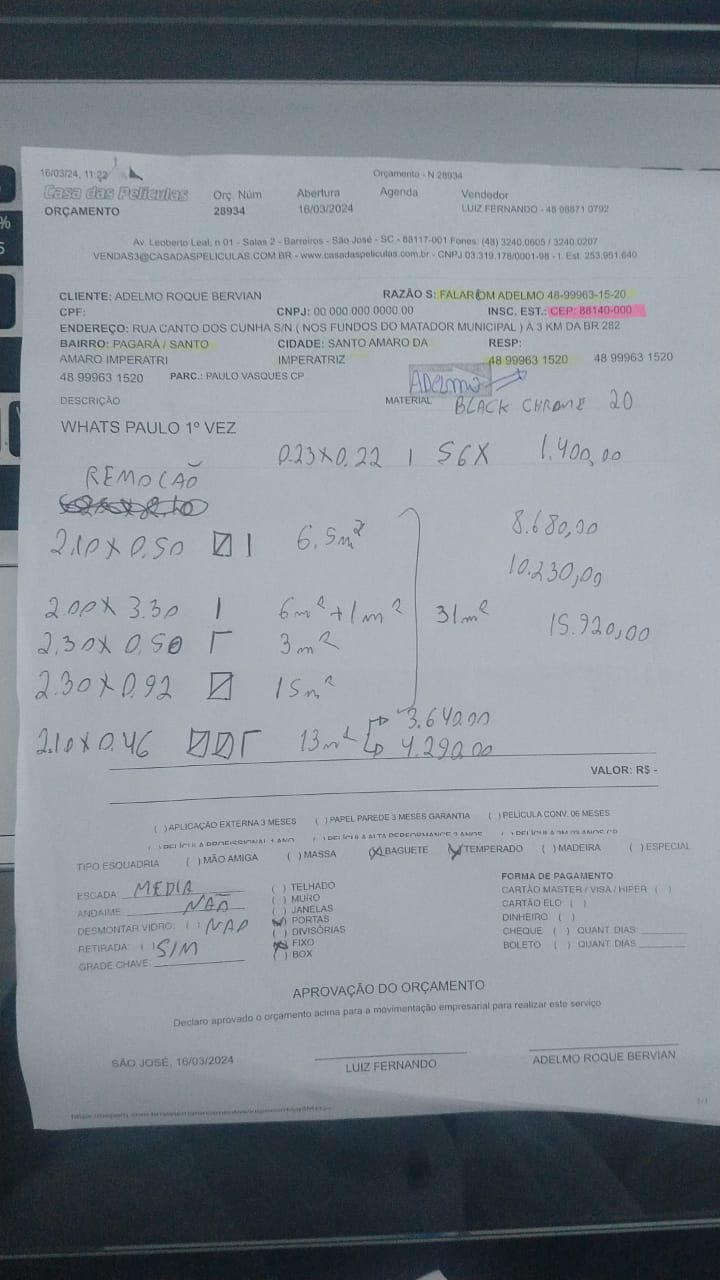 16/03/24, 11:22
Orçamento - N 28934
Casa das Películas Orç. Núm Abertura Agenda Vendedor
ORÇAMENTO 28934 16/03/2024 LUIZ FERNANDO - 48 98871 0792
Av. Leoberto Leal, n 01 - Salas 2 - Barreiros - São José - SC - 88117-001 Fones: (48) 3240.0605 / 3240.0207
VENDAS3@CASADASPELICULAS.COM.BR - www.casadaspeliculas.com.br - CNPJ 03.319.178/0001-98 - I. Est. 253.951.640
CLIENTE: ADELMO ROQUE BERVIAN RAZÃO S: FALAR OM ADELMO 48-99963-15-20
CPF: CNPJ: 00 000 000 0000 00 INSC. EST.: CEP: 88140-000
ENDEREÇO: RUA CANTO DOS CUNHA S/N ( NOS FUNDOS DO MATADOR MUNICIPAL ) À 3 KM DA BR 282
BAIRRO: PAGARÁ / SANTO CIDADE: SANTO AMARO DA RESP:
AMARO IMPERATRI IMPERATRIZ 48 99963 1520 48 99963 1520
48 99963 1520 PARC.: PAULO VASQUES CP
ADELMO
DESCRIÇÃO MATERIAL BLACK CHROME 20
WHATS PAULO 1º VEZ
0.23 X 0.22 1 SGX 1.400,00
REMOÇÃO
2,10 X 0.50 1 6,5m² 8.680,00
10.230,00
2.00 X 3.30 1 6m² + 1m² 31m² 15.920,00
2,30 X 0,50 3m²
2.30 X 0.92 15m²
2.10 X 0.46 13m² 3.640,00
4.290,00
VALOR: R$ -
( )APLICAÇÃO EXTERNA 3 MESES ( )PAPEL PAREDE 3 MESES GARANTIA ( )PELÍCULA CONV. 06 MESES
TIPO ESQUADRIA ( )MÃO AMIGA ( )MASSA (X)BAGUETE (X)TEMPERADO ( )MADEIRA ( )ESPECIAL
ESCADA: MEDIA
ANDAIME: NÃO
DESMONTAR VIDRO: ( ) NÃO
RETIRADA: ( ) SIM
GRADE CHAVE:
( ) TELHADO
( ) MURO
( ) JANELAS
(X) PORTAS
( ) DIVISÓRIAS
(X) FIXO
( ) BOX
FORMA DE PAGAMENTO
CARTÃO MASTER / VISA / HIPER ( )
CARTÃO ELO: ( )
DINHEIRO ( )
CHEQUE ( ) QUANT. DIAS:
BOLETO ( ) QUANT. DIAS
APROVAÇÃO DO ORÇAMENTO
Declaro aprovado o orçamento acima para a movimentação empresarial para realizar este serviço
SÃO JOSÉ, 16/03/2024
LUIZ FERNANDO
ADELMO ROQUE BERVIAN
1/1